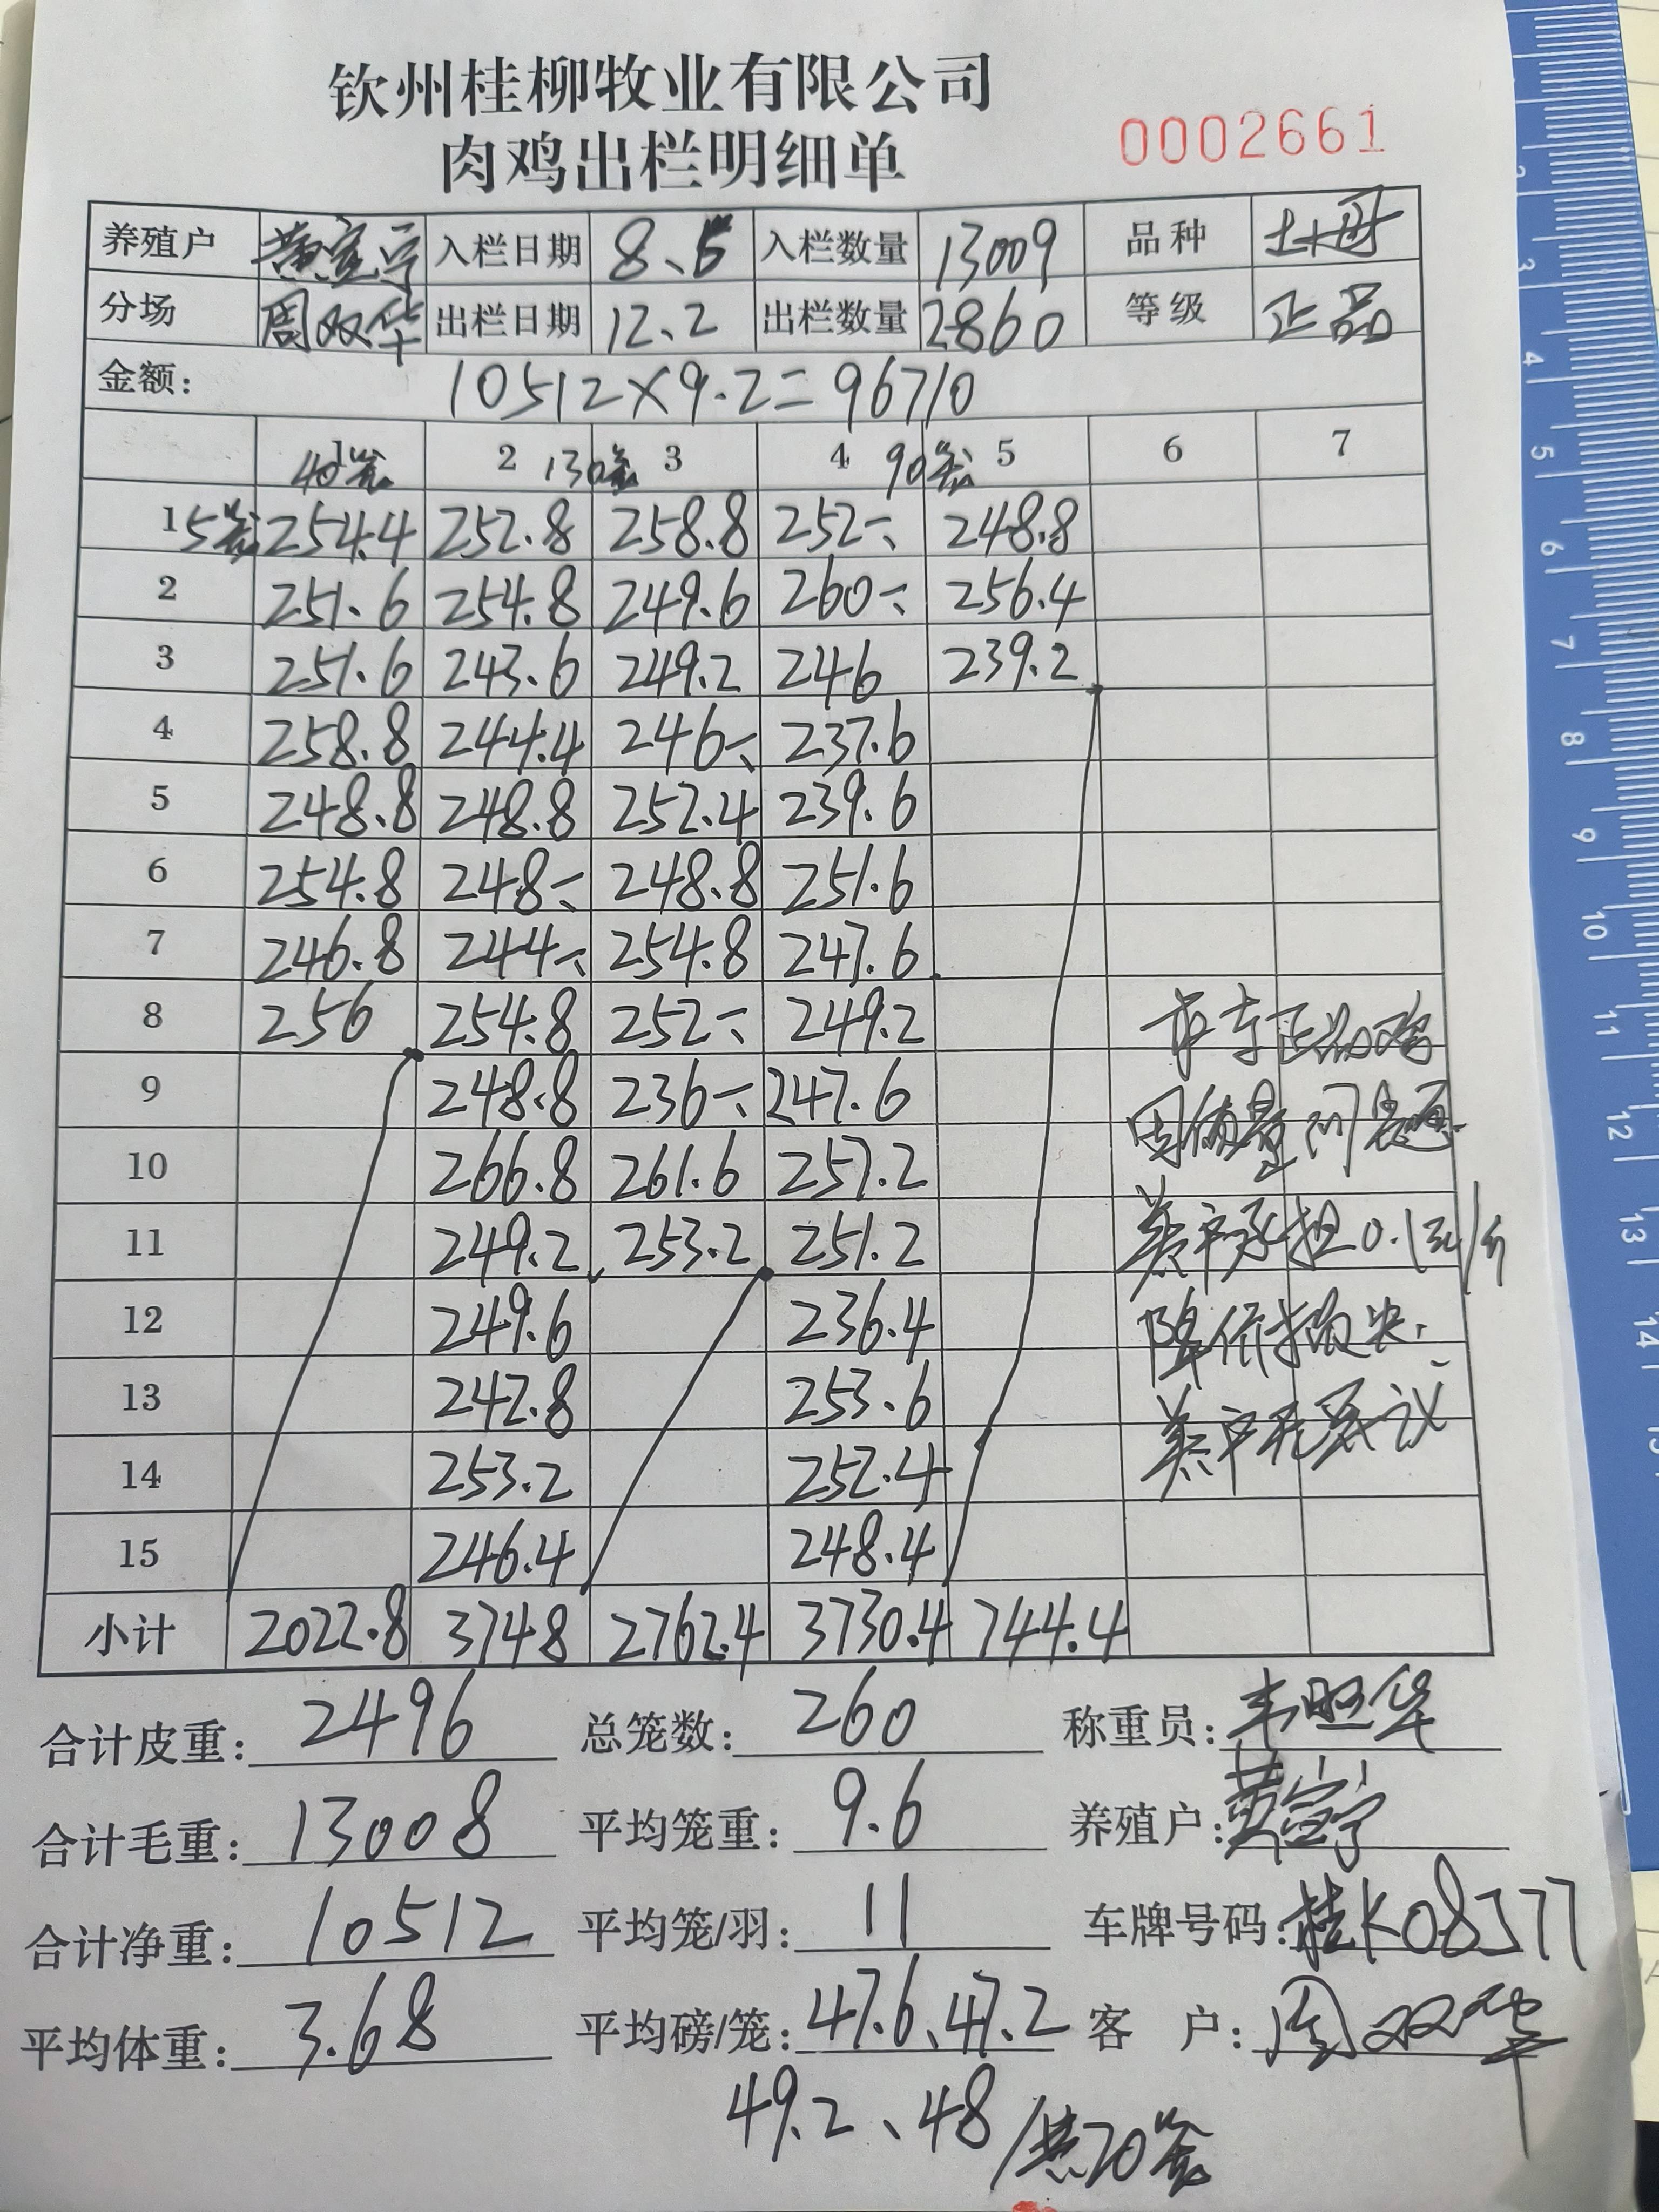 钦州桂柳牧业有限公司
肉鸡出栏明细单
0002661
养殖户 黄宝宁 入栏日期 8、5 入栏数量 13009 品种 土母
分场 周双华 出栏日期 12.2 出栏数量 2860 等级 正品
金额: 10512×9.2=96710
1 2 3 4 5 6 7
40笼 130笼 90笼
1 5笼 254.4 252.8 258.8 252-、 248.8
2 251.6 254.8 249.6 260-、 256.4
3 251.6 243.6 249.2 246 239.2
4 258.8 244.4 246-、 237.6
5 248.8 248.8 252.4 239.6
6 254.8 248-、 248.8 251.6
7 246.8 244-、 254.8 247.6
8 256 254.8 252-、 249.2
9 248.8 236-、 247.6
10 266.8 261.6 257.2
11 249.2 253.2 251.2
12 249.6 236.4
13 242.8 253.6
14 253.2 252.4
15 246.4 248.4
本车正品鸡
因质量问题
养户承担0.1元/斤
降价损失.
养户无异议
小计 2022.8 3748 2762.4 3730.4 744.4
合计皮重: 2496 总笼数: 260 称重员: 韦旺华
合计毛重: 13008 平均笼重: 9.6 养殖户: 黄宝宁
合计净重: 10512 平均笼/羽: 11 车牌号码: 桂K08J77
平均体重: 3.68 平均磅/笼: 47.6、47.2 客户: 周双华
49.2、48/共20笼
2
3
4
5
6
7
8
9
10
11
12
13
14